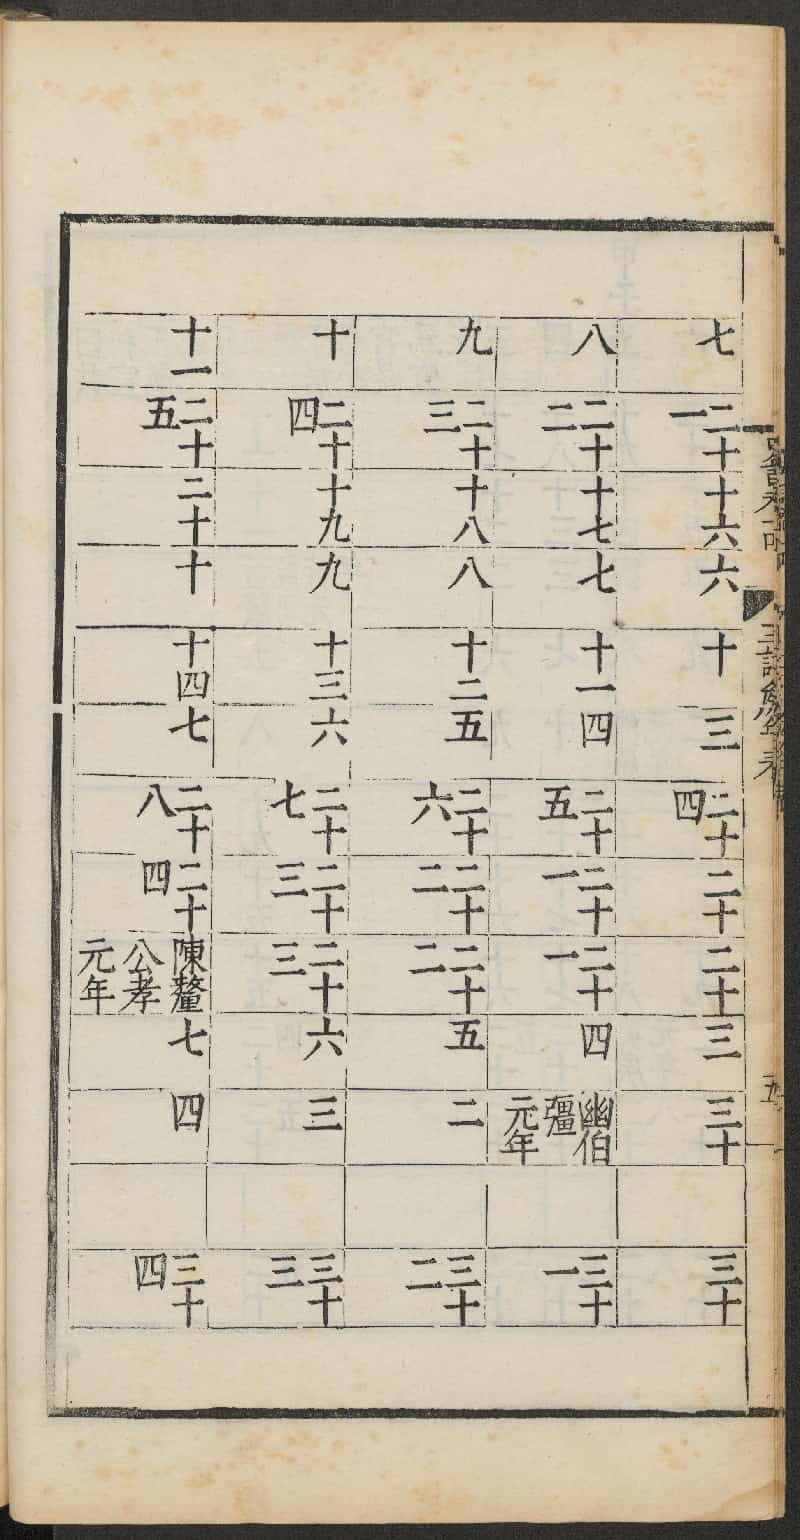 七 二十一 十六 六 十 三 二十四 二十 二十 三 三十 三十
八 二十二 十七 七 十一 四 二十五 二十一 二十一 四 幽伯彊元年 三十一
九 二十三 十八 八 十二 五 二十六 二十二 二十二 五 二 三十二
十 二十四 十九 九 十三 六 二十七 二十三 二十三 六 三 三十三
十一 二十五 二十 十 十四 七 二十八 二十四 陳釐公孝元年 七 四 三十四